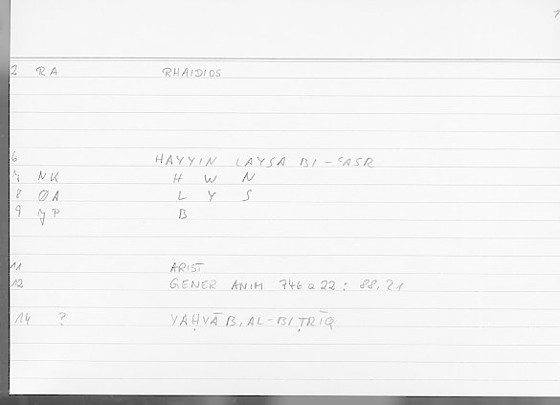 1
2 RA RHAIDIOS
6 HAYYIN LAYSA BI-ʿASR
7 NK H W N
8 ØA L Y S
9 yP B
11 ARIST
12 GENER ANIM 746a22 : 88,21
14 ? YAḤYĀ B. AL-BIṬRĪQ